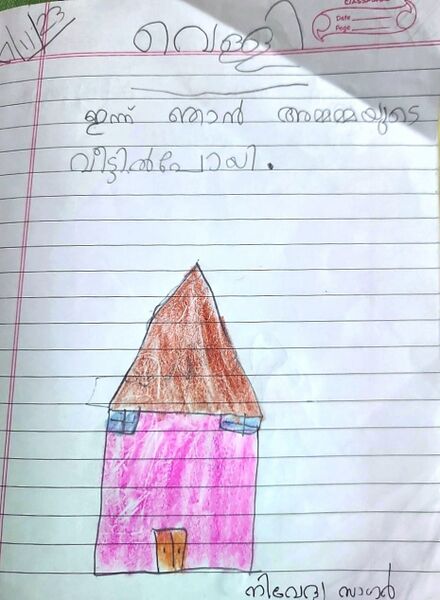 വെള്ളി
Date
Page
ഇന്ന് ഞാൻ അമ്മമ്മയുടെ
വീട്ടിൽപോയി.
നിവേദ്യ സാഗർ